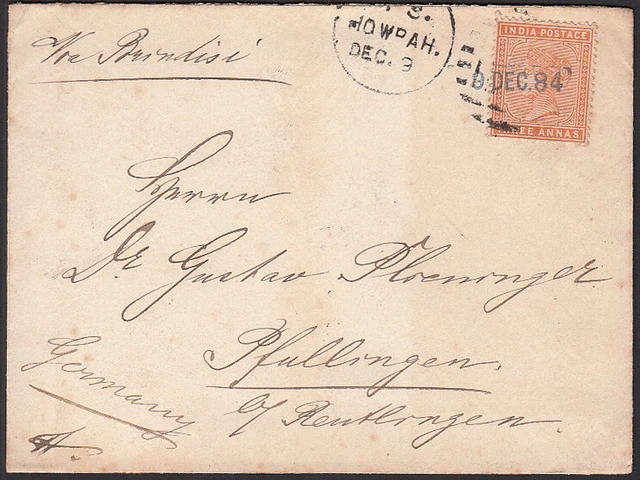 Via Brindisi
S.
HOWRAH.
DEC. 9
INDIA POSTAGE
9.DEC.84
THREE ANNAS
Herrn
Dr Gustav Ploeninger
Pfullingen.
Germany
b/ Reutlingen.